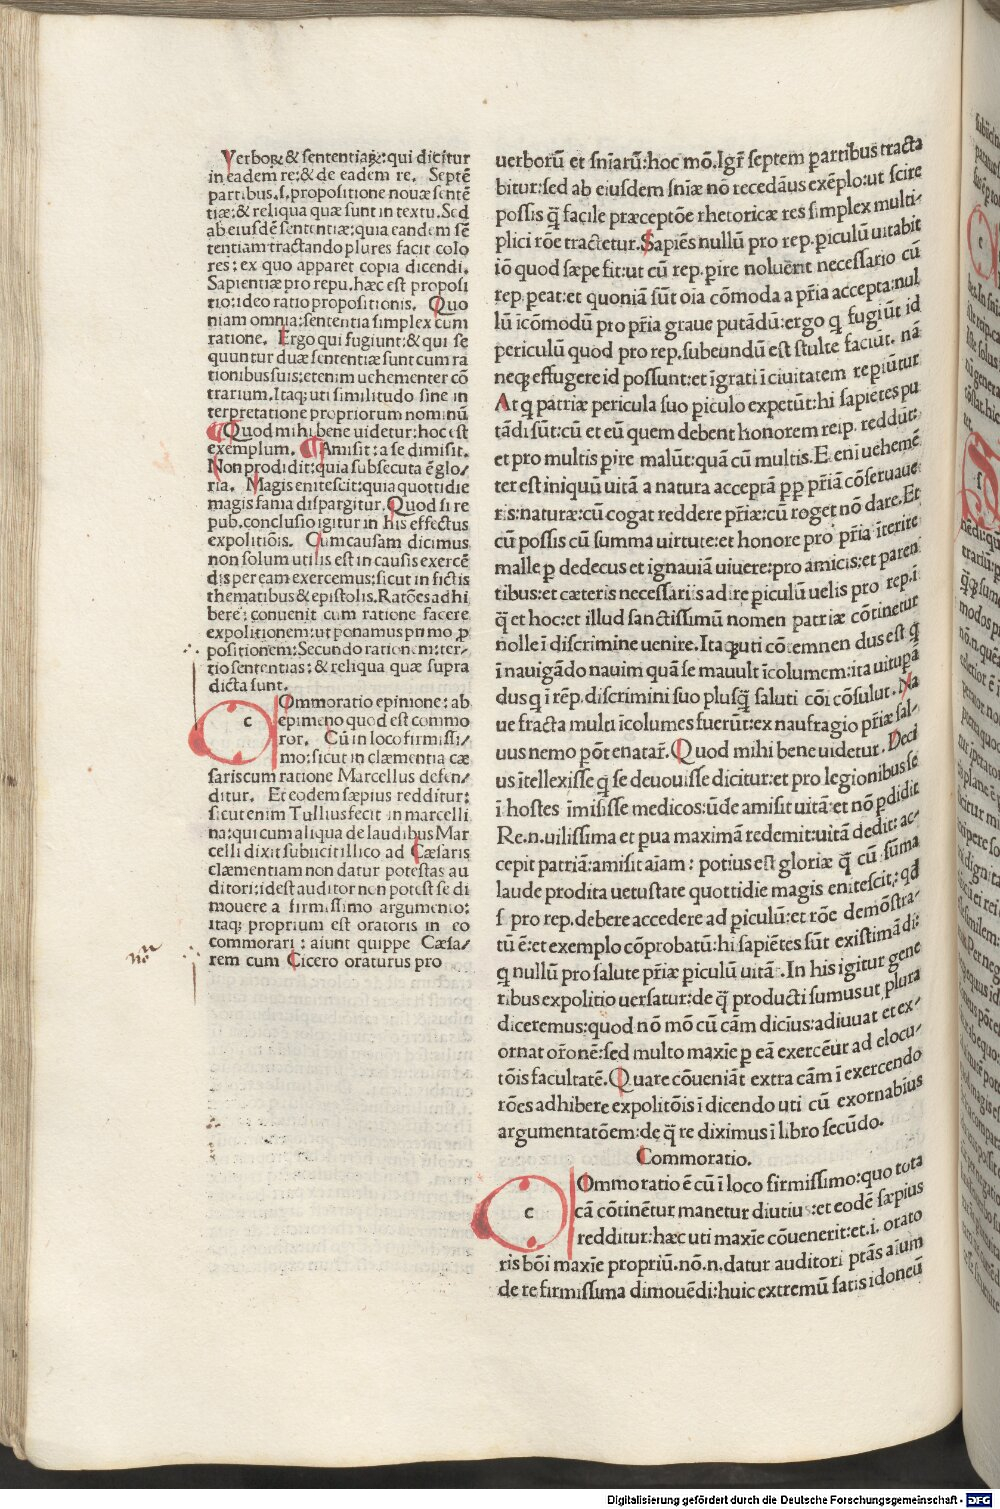 Verborꝝ & sententiaꝝ: qui dicitur
in eadem re; & de eadem re. Septē
partibus .s. propositione nouæ sentē
tiæ: & reliqua quæ sunt in textu. Sed
ab eiusdē sententiæ: quia eandem sē
tentiam tractando plures facit colo
res: ex quo apparet copia dicendi.
Sapientiæ pro repu. hæc est proposi
tio: ideo ratio propositionis. Quo
niam omnia: sententia simplex cum
ratione. Ergo qui fugiunt: & qui se
quuntur duæ sententiæ sunt cum ra
tionibus suis: etenim uehementer cō
trarium. Itaq; uti similitudo sine in
terpretatione propriorum nominū
Quod mihi bene uidetur: hoc est
exemplum. Amisit: a se dimisit.
Non prodidit: quia subsecuta ē glo/
ria. Magis enitescit: quia quottidie
magis fama dispargitur. Quod si re
pub. conclusio igitur in his effectus
expolitiōis. Cum causam dicimus
non solum utilis est in causis exercē
dis per eam exercemus: sicut in fictis
thematibus & epistolis. Ratōes adhi
bere: conuenit cum ratione facere
expolitionem: ut ponamus primo ꝓ
positionem: Secundo rationem: ter/
tio sententias: & reliqua quæ supra
dicta sunt.
c Ommoratio epinione: ab
epimeno quod est commo
ror. Cū in loco firmissi/
mo: sicut in clæmentia cæ
saris cum ratione Marcellus defen/
ditur. Et eodem sæpius redditur:
sicut enim Tullius fecit in marcelli
na: qui cum aliqua de laudibus Mar
celli dixit subiicit illico ad Cæsaris
clæmentiam non datur potestas au
ditori: idest auditor non potest se di
mouere a firmissimo argumento:
itaq; proprium est oratoris in eo
commorari: aiunt quippe Cæsa/
rem cum Cicero oraturus pro
uerborū et sniarū: hoc mō. Igr̄ septem partibus tracta
bitur: sed ab eiusdem sniæ nō recedāus exēplo: ut scire
possis q̄ facile præceptōe rhetoricæ res simplex multi-
plici rōe tractetur. Sapiēs nullū pro rep. piculū uitabit
iō quod sæpe fit: ut cū rep. pire noluerit necessario cū
rep. peat: et quoniā sūt oia cōmoda a pr̄ia accepta: nul
lū icōmodū pro pr̄ia graue putādū: ergo q fugiūt id
periculū quod pro rep. subeundū est stulte faciūt. nā
neq; effugere id possunt: et īgrati ī ciuitatem repiūtur
At q patriæ pericula suo piculo expetūt: hi sapiētes pu
tādi sūt: cū et eū quem debent honorem reip. reddūt:
et pro multis pire malūt: quā cū multis. Eteni uehemē
ter est iniquū uitā a natura acceptā pp pr̄iā cōseruaue
ris: naturæ: cū cogat reddere pr̄iæ: cū roget nō dare. Et
cū possis cū summa uirtute: et honore pro pr̄ia īterire
malle p dedecus et ignauiā uiuere: pro amicis: et paren
tibus: et cæteris necessariis adire piculū uelis pro rep. ī
q̄ et hoc: et illud sanctissimū nomen patriæ cōtinetur
nolle ī discrimine uenire. Itaq; uti cōtemnendus est q
ī nauigādo nauim quā se mauult īcolumem: ita uitupā
dus q ī rēp. discrimini suo plusq̄ saluti cōi cōsulut. Na
ue fracta multi īcolumes fuerūt: ex naufragio pr̄iæ sal-
uus nemo pōt enatar̄. Quod mihi bene uidetur. Deci
us ītellexisse q̄ se deuouisse dicitur: et pro legionibus se
ī hostes īmisisse medicos: ūde amisit uitā: et nō pdidit
Re .n. uilissima et pua maximā redemit: uitā dedit: ac-
cepit patriā: amisit aīam: potius est gloriæ q̄ cū sūma
laude prodita uetustate quottidie magis enitescit: qd
s pro rep. debere accedere ad piculū: et rōe demōstra-
tū ē: et exemplo cōprobatū: hi sapiētes sūt existimādi:
q nullū pro salute pr̄iæ piculū uitā. In his igitur gene
ribus expolitio uersatur: de q̄ producti sumus ut plura
diceremus: quod nō mō cū cām dicius: adiuuat et ex-
ornat or̄one: sed multo maxīe p eā exercēur ad elocu-
tōis facultatē. Quare cōueniāt extra cām ī exercendo
rōes adhibere expolitōis ī dicendo uti cū exornabius
argumentatōem: de q̄ re diximus ī libro secūdo.
Commoratio.
c Ommoratio ē cū ī loco firmissimo: quo tota
cā cōtinētur manetur diutius: et eodē sæpius
redditur: hæc uti maxīe cōuenerit: et .i. orato
ris bōi maxīe propriū. nō .n. datur auditori ptās aīum
de re firmissima dimouēdi: huic extremū satis idoneū
Digitalisierung gefördert durch die Deutsche Forschungsgemeinschaft - DFG